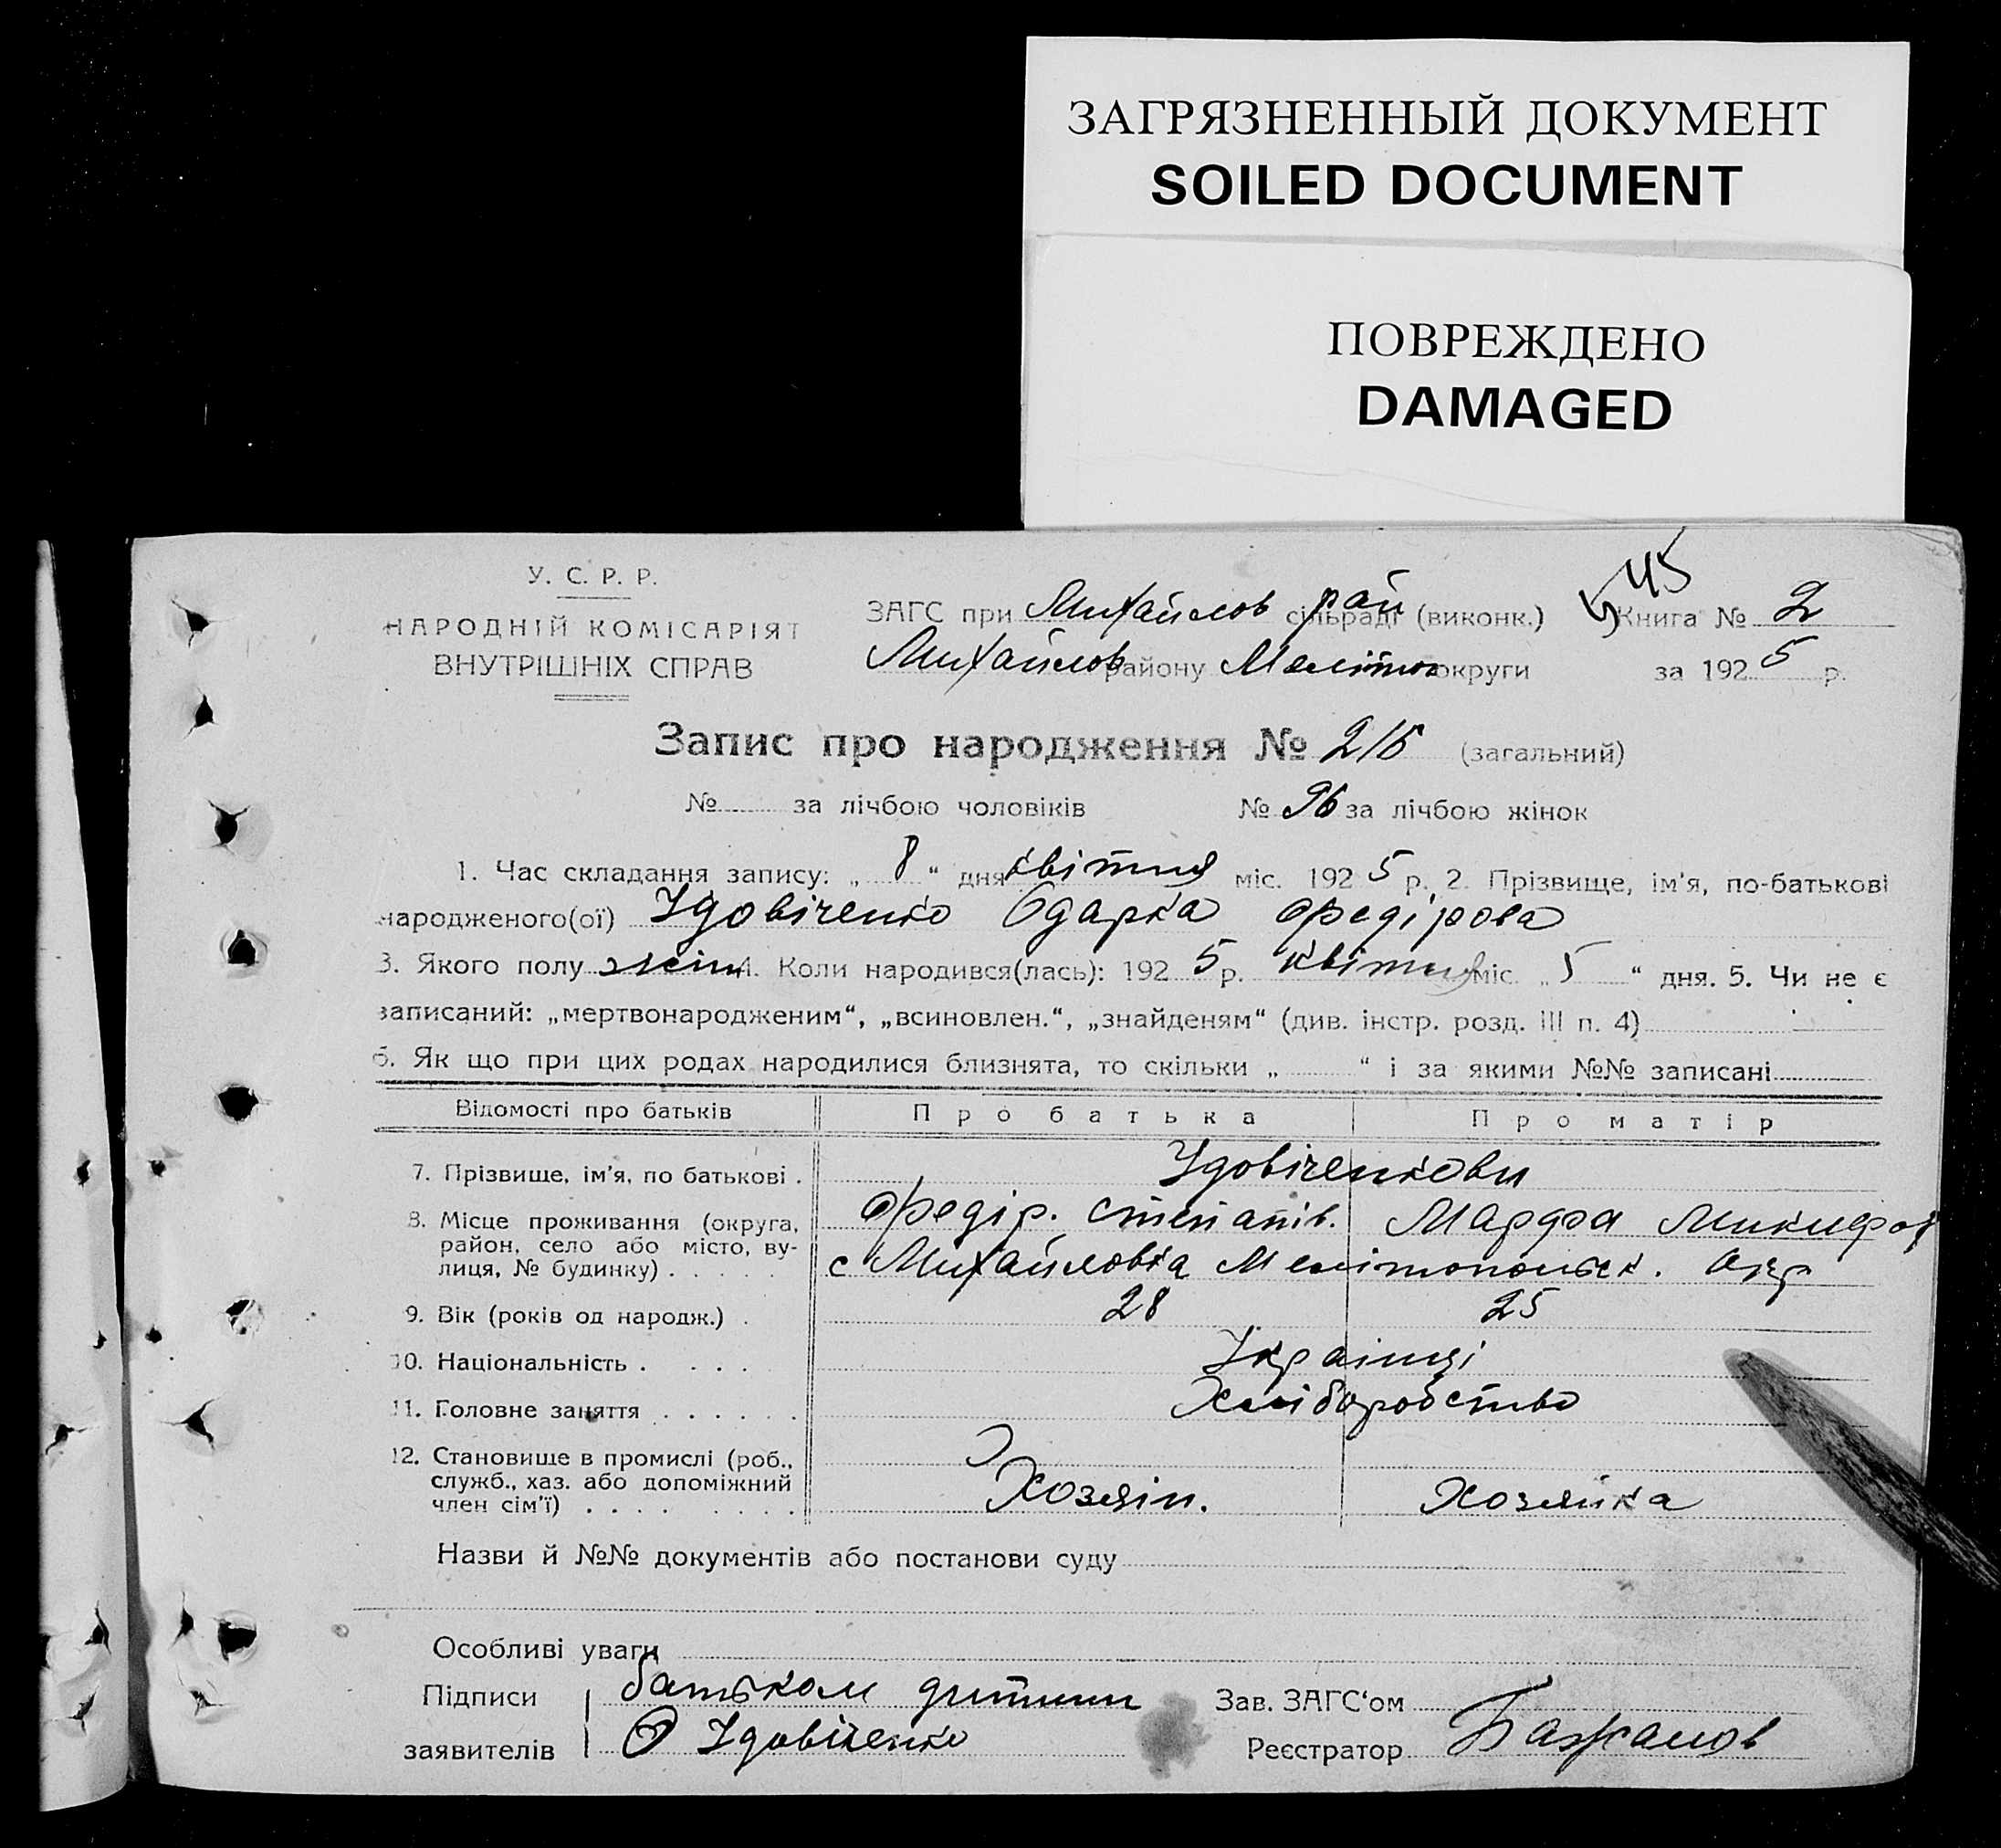 ЗАГРЯЗНЕННЫЙ ДОКУМЕНТ
SOILED DOCUMENT
ПОВРЕЖДЕНО
DAMAGED
У. С. Р. Р.
НАРОДНІЙ КОМІСАРІЯТ
ВНУТРІШНІХ СПРАВ
45
ЗАГС при Михайлов рай сільраді (виконк.) Книга № 2
Михайлов району Мелітоп округи за 1925 р.
Запис про народження № 216 (загальний)
№ за лічбою чоловіків № 96 за лічбою жінок
1. Час складання запису: „ 8 “ дня квітня міс. 1925 р. 2. Прізвище, ім'я, по-батькові
народженого(ої) Удовіченко Одарка Федірова
3. Якого полу жін 4. Коли народився(лась): 1925 р. квітня міс. „ 5 “ дня. 5. Чи не є
записаний: „мертвонародженим“, „всиновлен.“, „знайденям“ (див. інстр. розд. III п. 4)
6. Як що при цих родах народилися близнята, то скільки „ “ і за якими №№ записані
Відомості про батьків Про батька Про матір
7. Прізвище, ім'я, по батькові . Удовіченкови
Федір. Степанів. Марфа Микифор
8. Місце проживання (округа, район, село або місто, вулиця, № будинку) . . . . . с Михайловка Мелітопольск. Окр
9. Вік (років од народж.) . 28 25
10. Національність . . . . Українці
11. Головне заняття . . . . . . Хліборобство
12. Становище в промислі (роб., служб., хаз. або допоміжний член сім'ї) . . . . . . . . Хозяін. Хозяйка
Назви й №№ документів або постанови суду
Особливі уваги
Підписи батьком дитини Зав. ЗАГС'ом
заявителів Удовіченко Реєстратор Бажанов